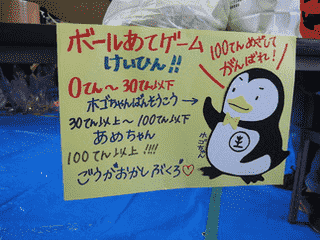 ボールあてゲーム
けいひん!!
100てんめざして
がんばれ!
0てん～30てん以下
ホゴちゃんばんそうこう→
30てん以上～100てん以下
あめちゃん
100てん以上!!!!
ごうかおかしぶくろ♡